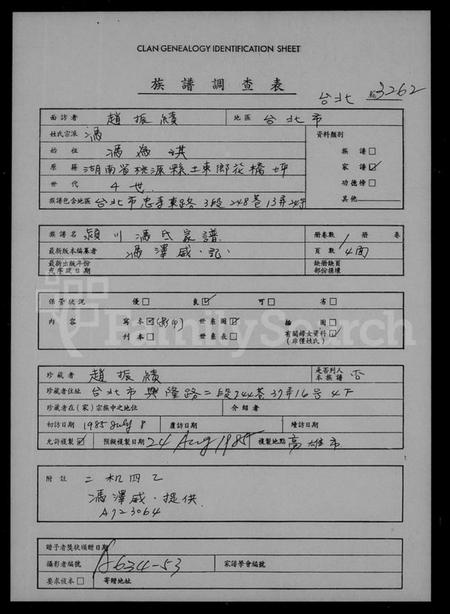 CLAN GENEALOGY IDENTIFICATION SHEET
族譜調查表
台北 3262
面訪者 趙振績 地區 台北市
姓氏宗派 馮 資料類別
始祖 馮 祺 族譜□
原籍 湖南省桃源縣土東鄉花橋坪 家譜☑
世代 4世 功德榜□
族譜包含地區 台北市忠孝東路3段248巷13弄 其他
族譜名 潁川馮氏家譜 冊卷數 1 冊 卷
最新版本編纂者 馮澤威.記 頁數 4面
最新出版年份或序跋日期 缺冊缺頁部份損壞
保管狀況 優□ 良☑ 可□ 劣□
內容 寫本☑(影印) 世系圖☑ 插圖□ 有關婦女資料☑
刊本□ 世系表□ (非僅姓氏)
珍藏者 趙振績 是否列入本族譜 否
珍藏者住址 台北市興隆路二段244巷37弄16号4F
珍藏者在(家)宗族中之地位 介紹者
初訪日期 1985 July 8 覆訪日期 續訪日期
允許複製☑ 預擬複製日期 24 Aug 1985 複製地點 高雄市
附註 二机四乙
馮澤威.提供
A123064
贈予者獎狀頒贈日期
攝影者編號 A634-53 家譜學會編號
要求複本□ 寄贈地址
FamilySearch